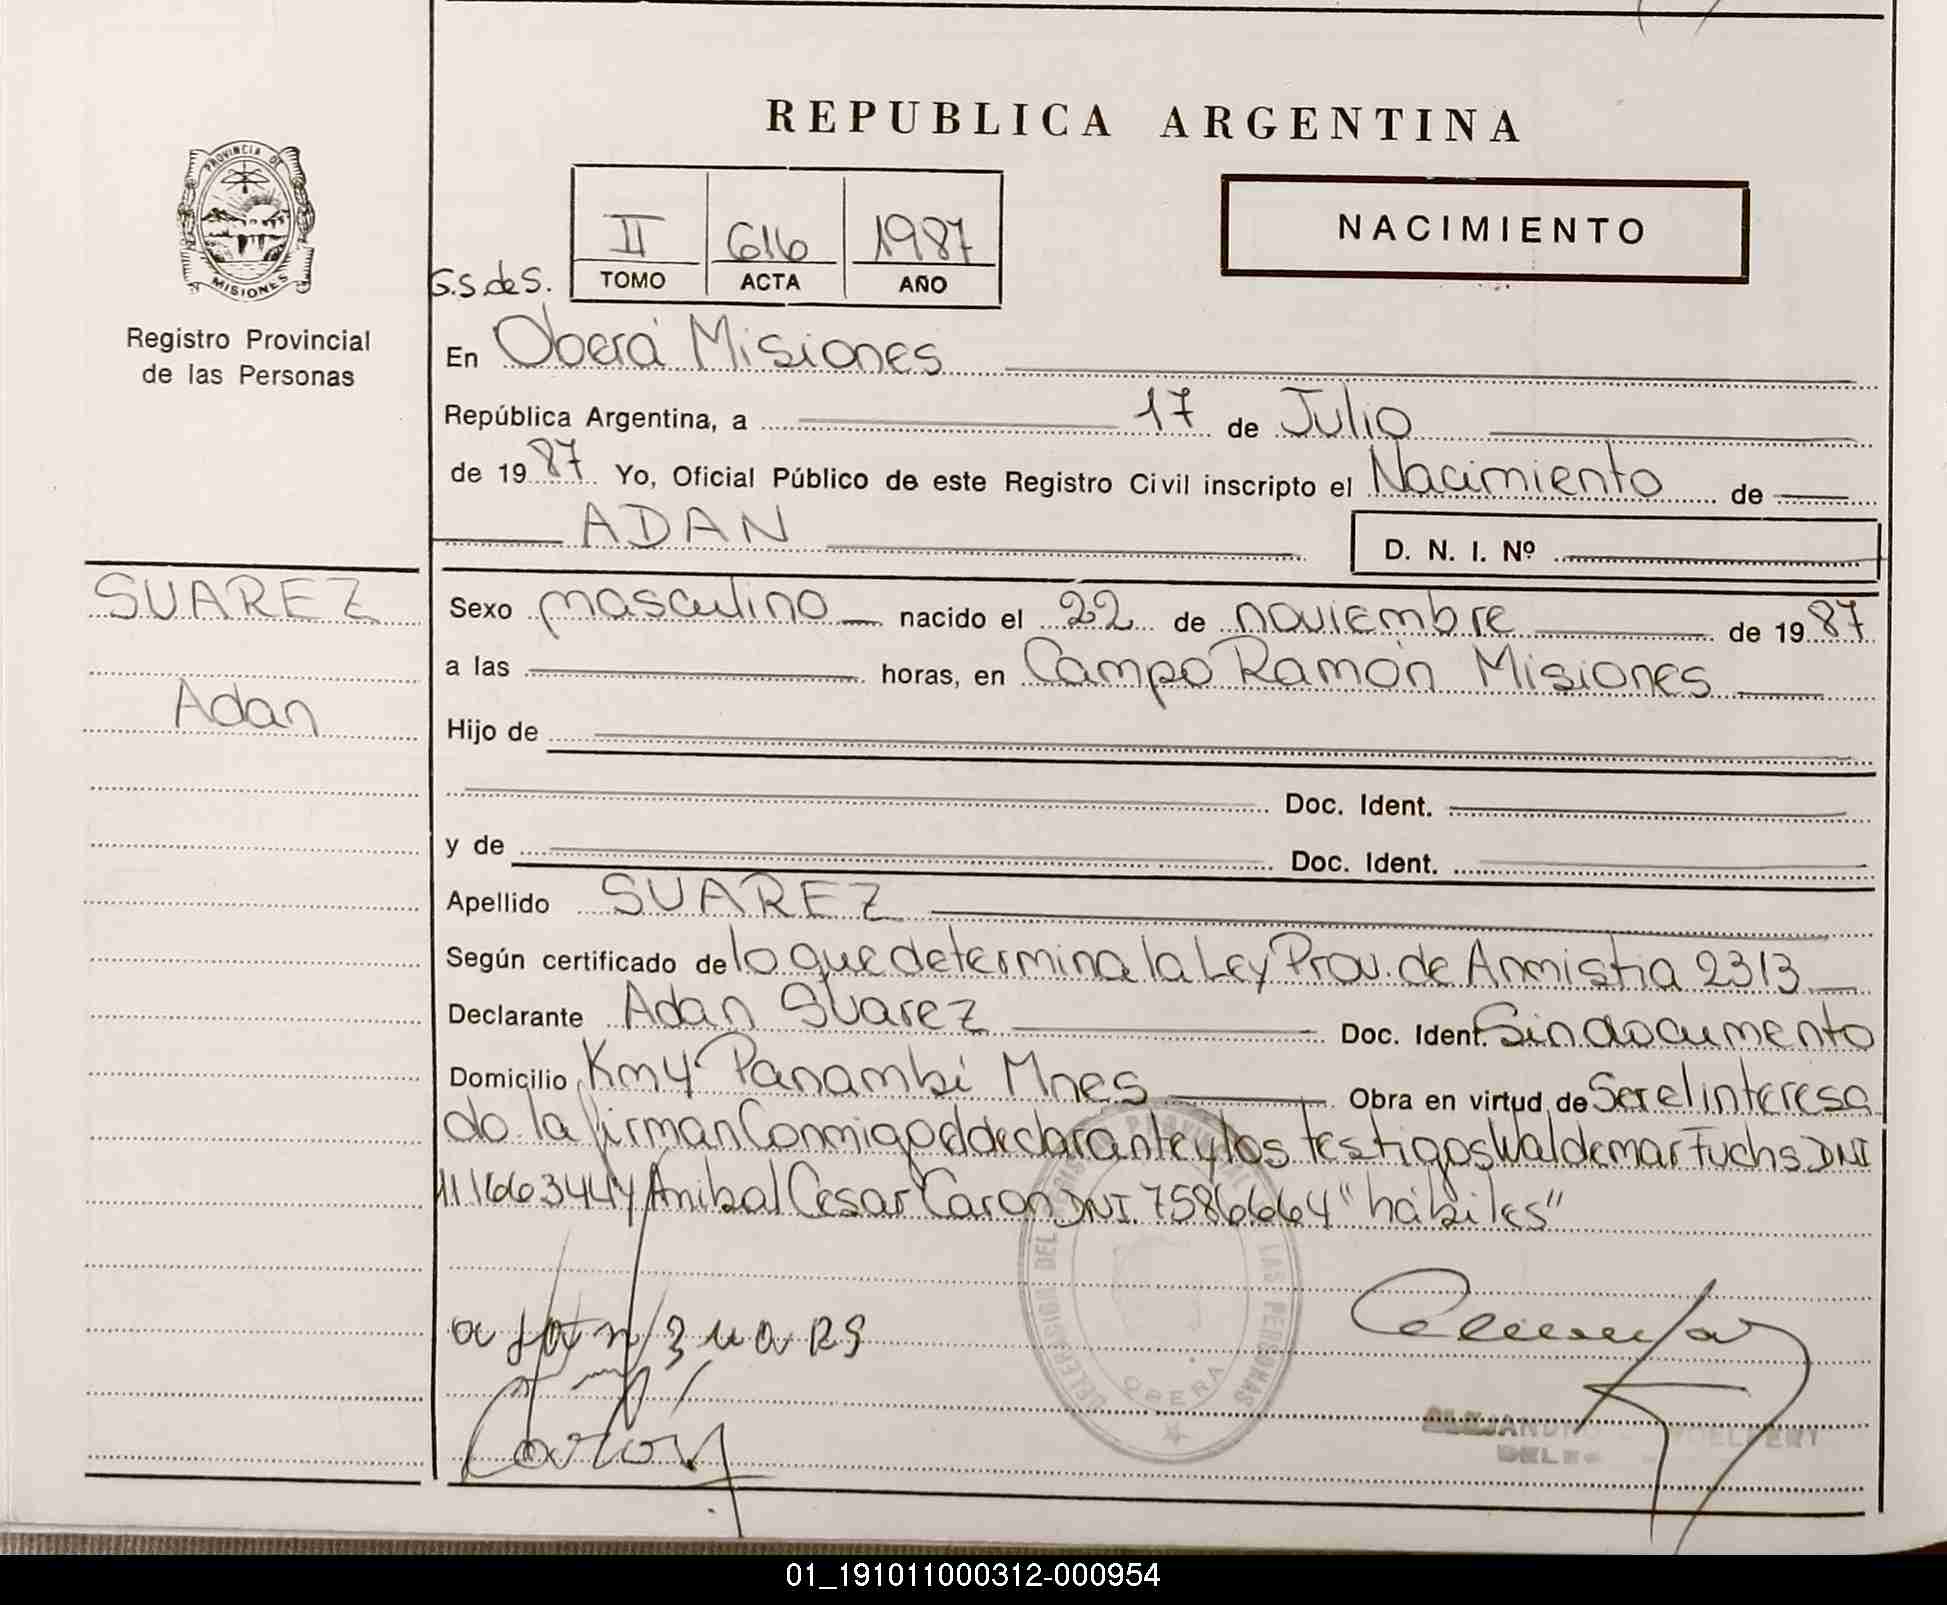 REPUBLICA ARGENTINA
PROVINCIA DE
MISIONES
Registro Provincial
de las Personas
NACIMIENTO
II 616 1987
G.S.deS. TOMO ACTA AÑO
En Oberá Misiones
República Argentina, a 17 de Julio
de 1987 Yo, Oficial Público de este Registro Civil inscripto el Nacimiento de
ADAN D. N. I. Nº
SUAREZ
Adan
Sexo masculino nacido el 22 de noviembre de 1987
a las horas, en Campo Ramón Misiones
Hijo de
Doc. Ident.
y de Doc. Ident.
Apellido SUAREZ
Según certificado de lo que determina la Ley Prov. de Anmistia 2313
Declarante Adan Suarez Doc. Ident. Sin documento
Domicilio Km4 Panambi Mnes Obra en virtud de Ser el interesa
do la firman Conmigo el declarante y los testigos Waldemar Fuchs DNI
11166344 y Anibal Cesar Caron DNI 7586664 "hábiles"
DEL REGISTRO PROVINCIAL DE LAS PERSONAS
OBERA
01_191011000312-000954